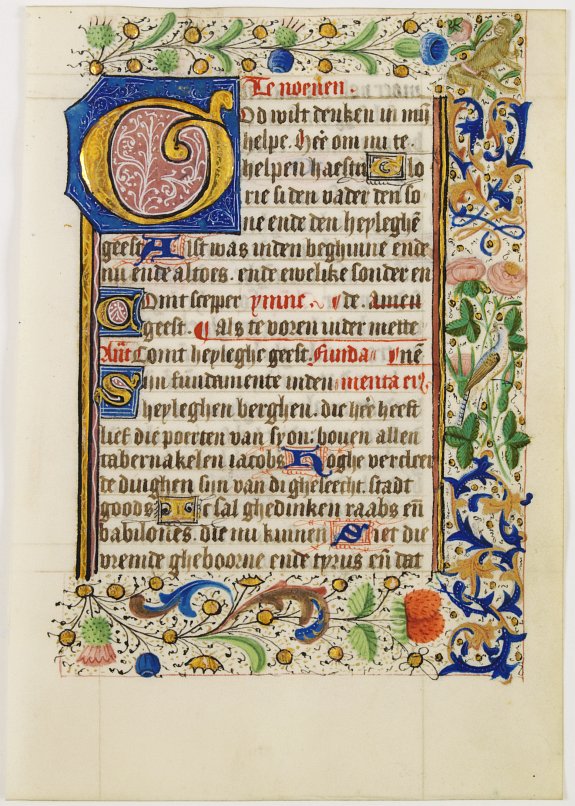 Te noenen.
God wilt denken in mijn
helpe. Heer om mi te
helpen haesti Glo
rie si den vader den so
ne ende den heyleghē
geest Alst was inden beghinne ende
nu ende altoes. ende ewelike sonder en
Comt scepper ymne. de. Amen
geest. als te voren inder mette
Ant Comt heyleghe geest. Funda ynē
Sijn fundamente inden menta eiꝰ.
heyleghen berghen. die heer heeft
lief die poerten van syon: bouen allen
tabernakelen iacobs Hoghe vercleer
te dinghen sijn van di gheseecht. stadt
goods Ic sal ghedinken raabs eñ
babilones. die mi kinnen Siet die
vremde gheboorne ende tyrus eñ dat